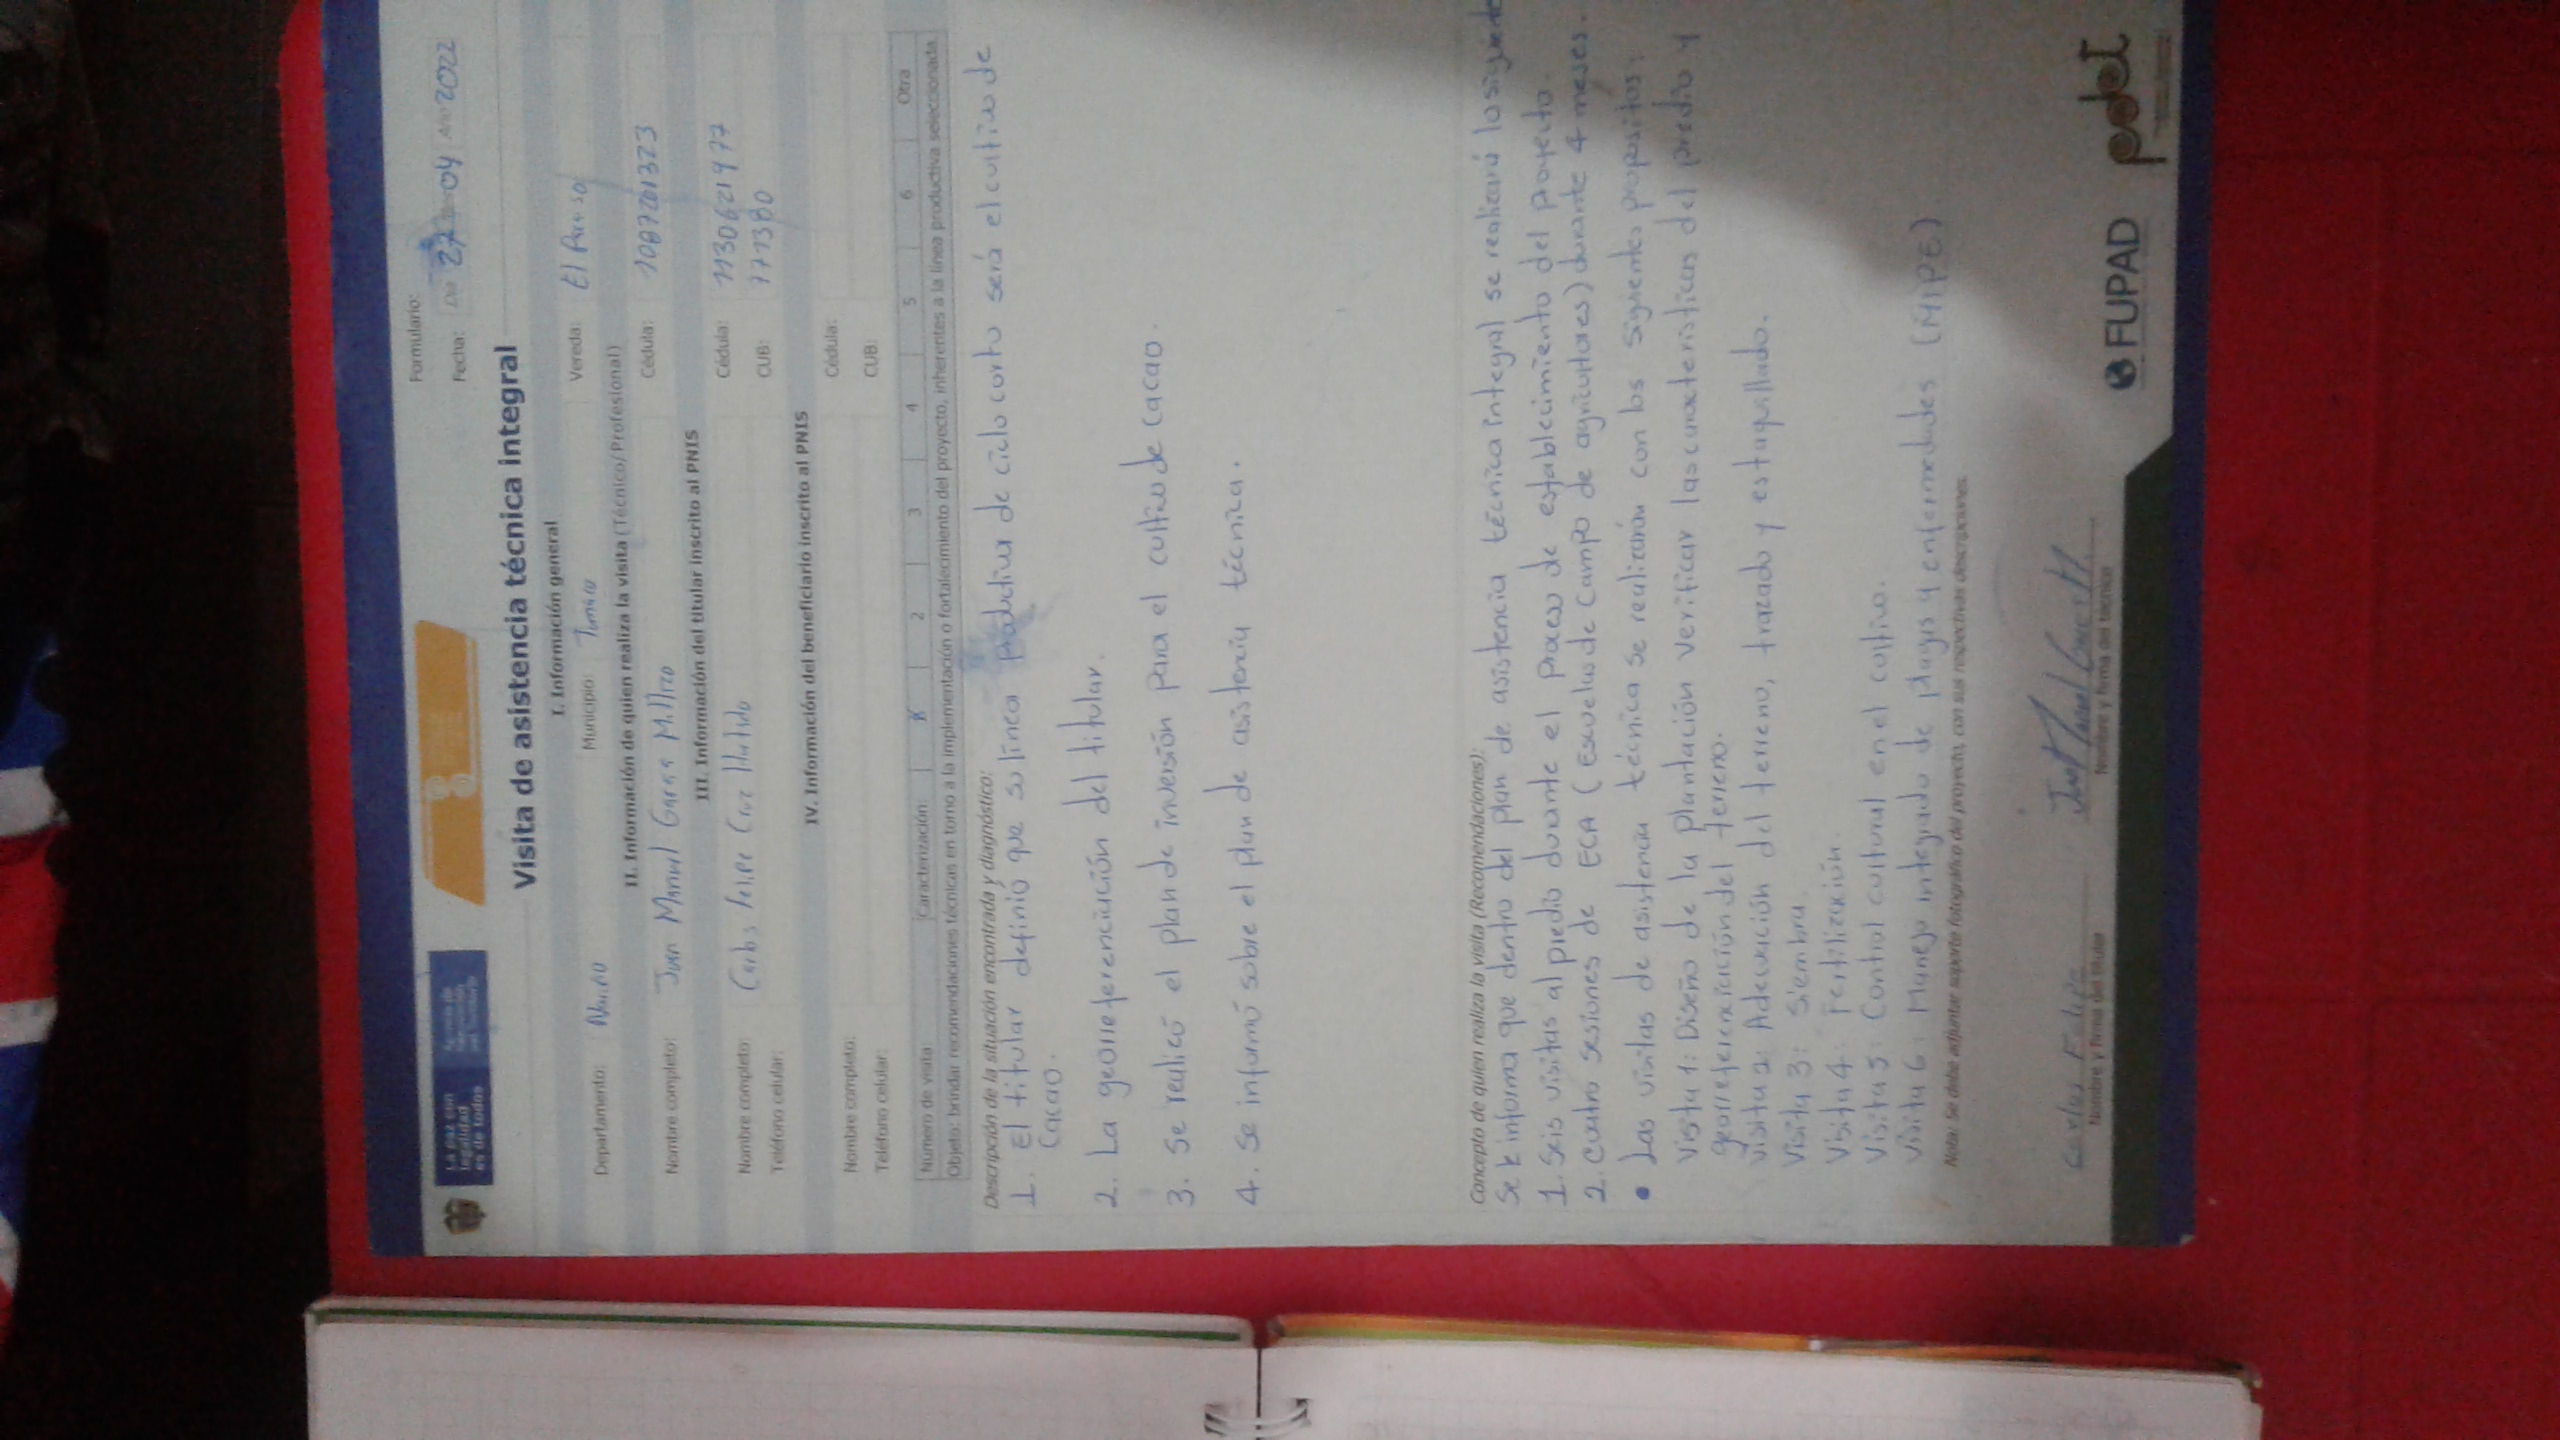 La paz con
legalidad
es de todos
Agencia de
Renovación
del Territorio
Formulario:
Fecha: Día 27 Mes 04 Año 2022
Visita de asistencia técnica integral
I. Información general
Departamento: Nariño Municipio: Tumaco Vereda: El Paraiso
II. Información de quien realiza la visita (Técnico/Profesional)
Nombre completo: Juan Manuel Cédula: 1087201323
III. Información del titular inscrito al PNIS
Nombre completo: Carlos Felipe Cruz Hurtado Cédula: 1130621977
Teléfono celular: CUB:
IV. Información del beneficiario inscrito al PNIS
Nombre completo: Cédula:
Teléfono celular: CUB:
Número de visita: Caracterización: X 2 3 4 5 6 Otra
Objeto: brindar recomendaciones técnicas en torno a la implementación o fortalecimiento del proyecto, inherentes a la línea productiva seleccionada.
Descripción de la situación encontrada y diagnóstico:
1. El titular definio que su linea Productiva de ciclo corto será el cultivo de
Cacao.
2. La georreferenciación del titular.
3. Se realicó el plan de inversión para el cultivo de Cacao.
4. Se informó sobre el plan de asistencia técnica.
Concepto de quien realiza la visita (Recomendaciones):
Se le informa que dentro del plan de asistencia técnica integral se realizará lo siguiente
1. Seis visitas al predio durante el proceso de establecimiento del proyecto.
2. Cuatro sesiones de ECA (Escuelas de Campo de agricultores) durante 4 meses.
• Las visitas de asistencia técnica se realizarán con los siguientes propositos:
Visita 1: Diseño de la plantación verificar las caracteristicas del predio y
georreferenciación del terreno.
Visita 2: Adecuación del terreno, trazado y estaquillado.
Visita 3: Siembra.
Visita 4: Fertilización.
Visita 5: Control cultural en el cultivo.
Visita 6: Manejo integrado de plagas y enfermedades (MIPE)
Nota: Se debe adjuntar soporte fotográfico del proyecto, con sus respectivas descripciones.
Carlos Felipe
Nombre y firma del titular
Nombre y firma del técnico
FUPAD
pdet